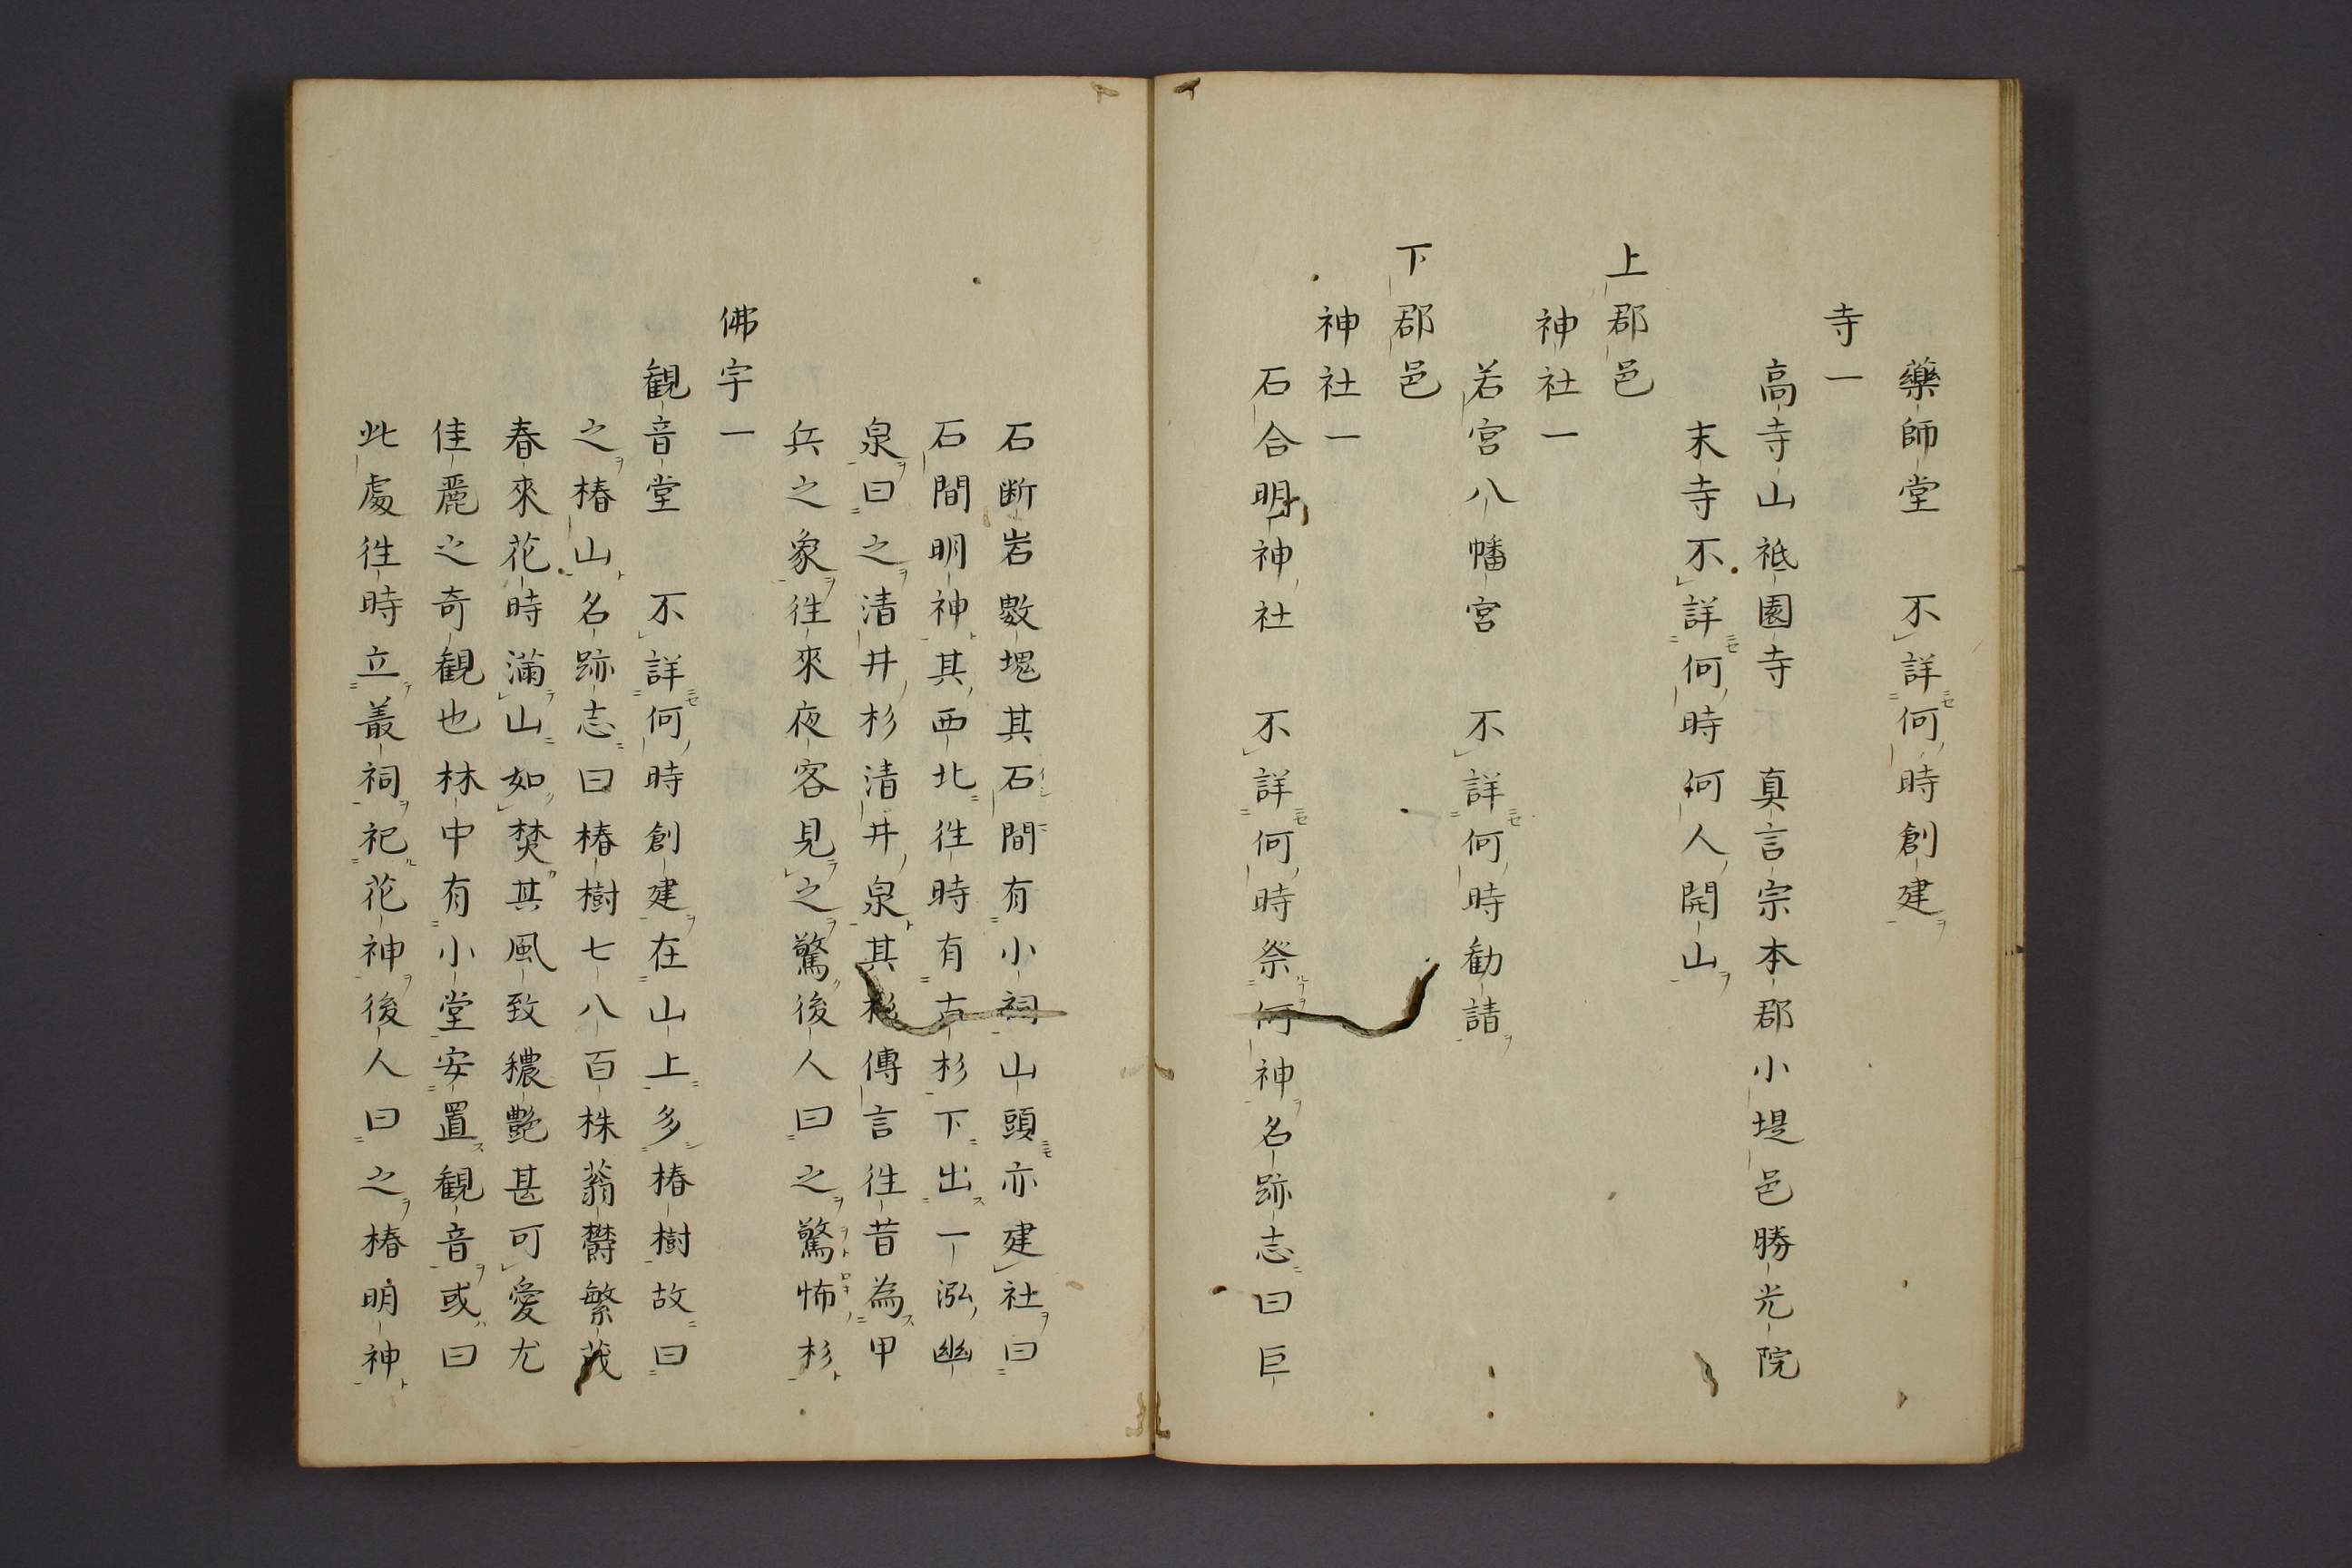 藥師堂　不詳何時創建
寺一
高寺山祇園寺　真言宗本郡小堤邑勝光院
末寺不詳何時何人開山
上郡邑
神社一
若宮八幡宮　不詳何時勧請
下郡邑
神社一
石合明神社　不詳何時祭何神名跡志曰巨
石断岩數塊其石間有小祠山頭亦建社曰
石間明神其西北徃時有古杉下出一泓幽
泉曰之清井杉清井泉其杉傳言徃昔為甲
兵之象徃來夜客見之驚後人曰之驚怖杉
佛宇一
観音堂　不詳何時創建在山上多椿樹故曰
之椿山名跡志曰椿樹七八百株蓊欝繁茂
春來花時滿山如焚其風致穠艶甚可愛尤
佳麗之奇観也林中有小堂安置観音或曰
此處徃時立叢祠祀花神後人曰之椿明神